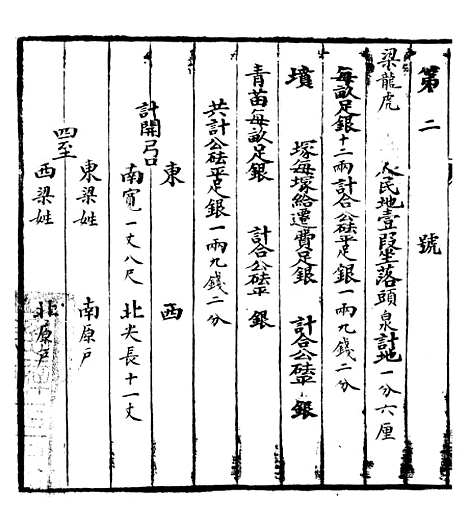 第二號
梁龍虎 人民地壹叚坐落頭泉計地一分六厘
每畝足銀十二兩計合公砝平足銀一兩九錢二分
墳 塚每塚給遷費足銀 計合公砝平 銀
青苗每畝足銀 計合公砝平 銀
共計公砝平足銀一兩九錢二分
計開弓口 東 西
南寬一丈八尺 北尖長十一丈
四至 東梁姓 南原户
西梁姓 北原户